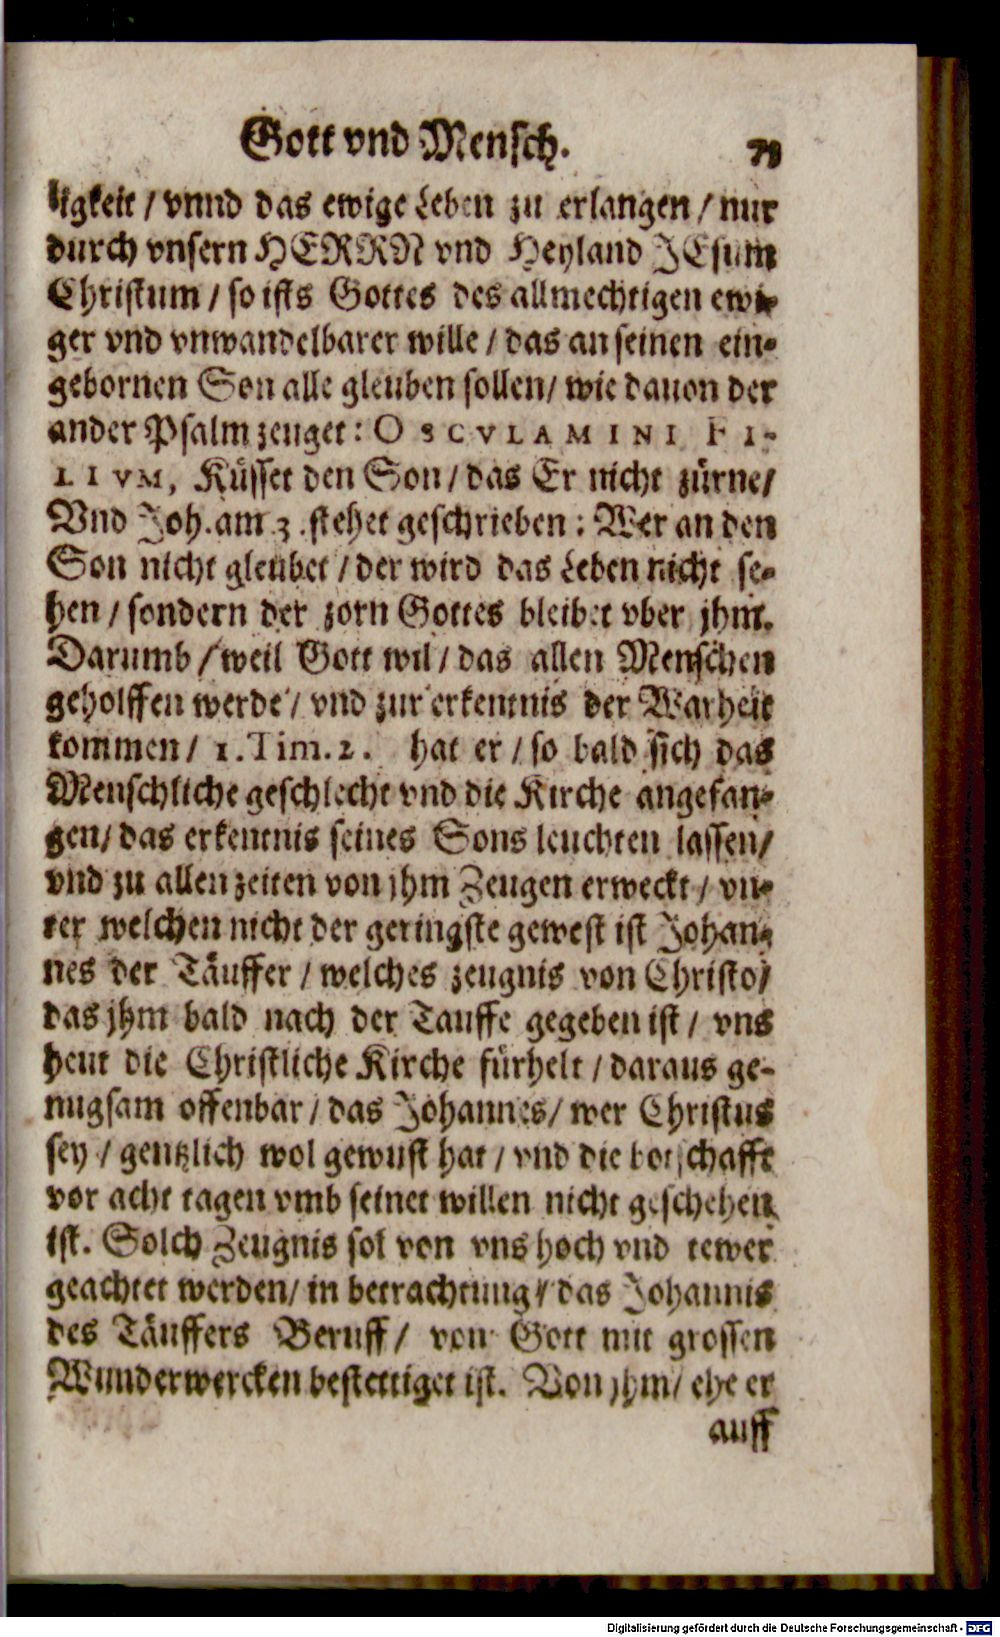 Gott vnd Mensch.
ligkeit / vnnd das ewige Leben zu erlangen / nur
durch vnsern HERRN vnd Heyland JEsum
Christum / so ists Gottes des allmechtigen ewi-
ger vnd vnwandelbarer wille / das an seinen ein-
gebornen Son alle gleuben sollen / wie dauon der
ander Psalm zeuget: OSCVLAMINI FI-
LIVM, Küsset den Son / das Er nicht zürne /
Vnd Joh. am 3. stehet geschrieben: Wer an den
Son nicht gleubet / der wird das Leben nicht se-
hen / sondern der zorn Gottes bleibet vber jhm.
Darumb / weil Gott wil / das allen Menschen
geholffen werde / vnd zur erkentnis der Warheit
kommen / 1. Tim. 2. hat er / so bald sich das
Menschliche geschlecht vnd die Kirche angefan-
gen / das erkentnis seines Sons leuchten lassen /
vnd zu allen zeiten von jhm Zeugen erweckt / vn-
ter welchen nicht der geringste gewest ist Johan-
nes der Täuffer / welches zeugnis von Christo /
das jhm bald nach der Tauffe gegeben ist / vns
heut die Christliche Kirche fürhelt / daraus ge-
nugsam offenbar / das Johannes / wer Christus
sey / gentzlich wol gewust hat / vnd die botschafft
vor acht tagen vmb seinet willen nicht geschehen
ist. Solch Zeugnis sol von vns hoch vnd tewer
geachtet werden / in betrachtung / das Johannis
des Täuffers Beruff / von Gott mit grossen
Wunderwercken bestettiget ist. Von jhm / ehe er
auff
Digitalisierung gefördert durch die Deutsche Forschungsgemeinschaft - DFG